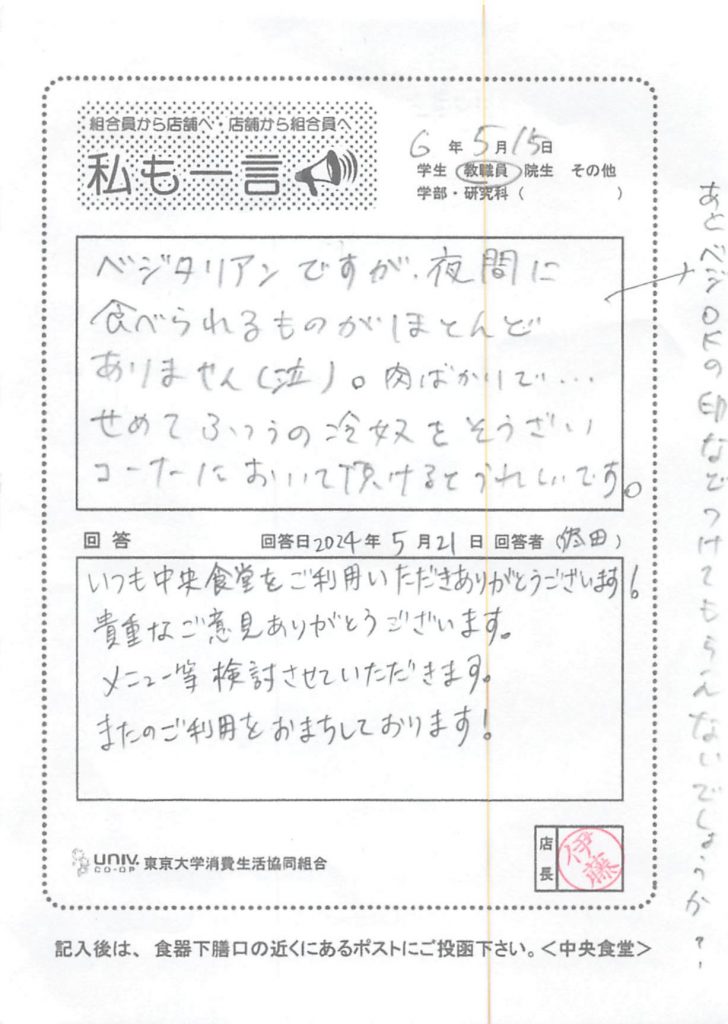 組合員から店舗へ・店舗から組合員へ
私も一言
6年5月15日
学生 教職員 院生 その他
学部・研究科（ ）
ベジタリアンですが、夜間に
食べられるものがほとんど
ありません（泣）。肉ばかりで…
せめてふつうの冷奴をそうざい
コーナーにおいて頂けるとうれしいです。
あとベジOKの印などつけてもらえないでしょうか？
回答 回答日2024年5月21日 回答者（田）
いつも中央食堂をご利用いただきありがとうございます！
貴重なご意見ありがとうございます。
メニュー等検討させていただきます。
またのご利用をおまちしております！
UNIV. CO-OP 東京大学消費生活協同組合
店長 伊藤
記入後は、食器下膳口の近くにあるポストにご投函下さい。＜中央食堂＞